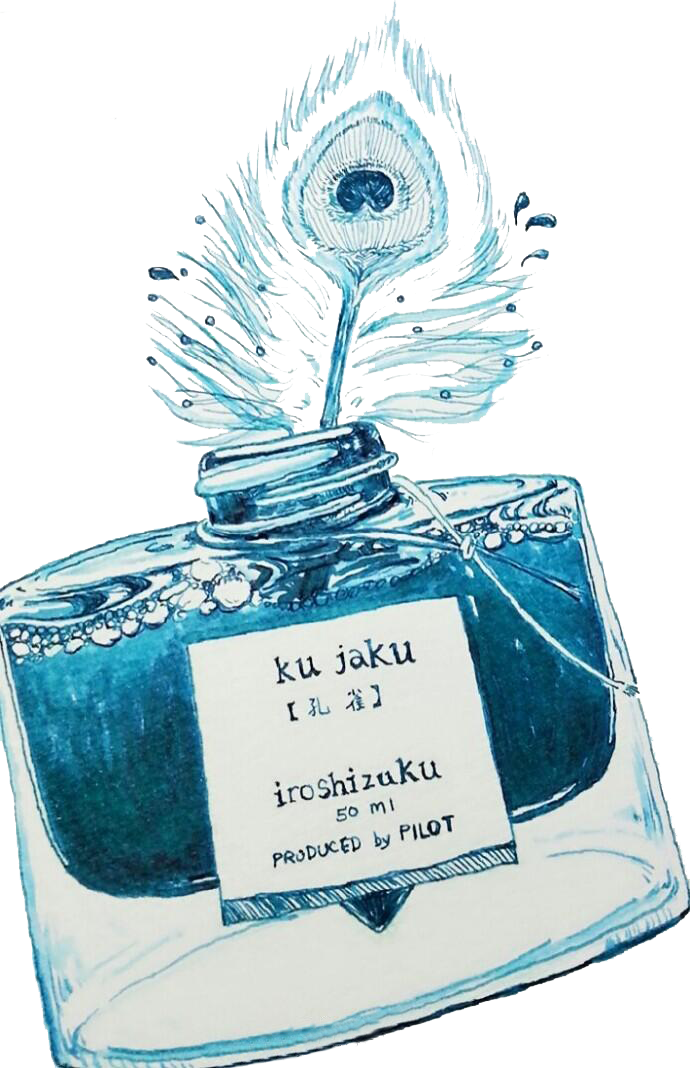 ku jaku
【孔雀】
iroshizuku
50 ml
PRODUCED by PILOT